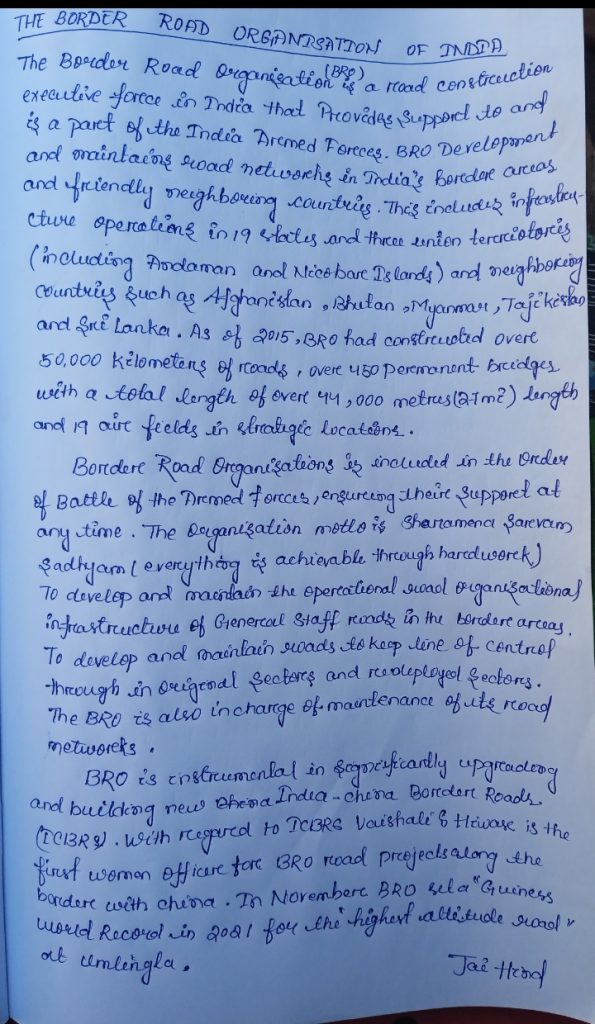 THE BORDER ROAD ORGANISATION OF INDIA
The Border Road Organisation (BRO) is a road construction
executive force in India that Provides support to and
is a part of the India Armed Forces. BRO Development
and maintains road networks in India's Border areas
and friendly neighboring countries. This includes infrastru-
cture operations in 19 states and three union terrciotories
(including Andaman and Nicobar Islands) and neighboring
countries such as Afghanistan, Bhutan, Myanmar, Tajikistan
and Sri Lanka. As of 2015, BRO had constructed over
50,000 kilometers of roads, over 450 permanant bridges
with a total length of over 44,000 metres (27m²) length
and 19 air fields in strategic locations.
Border Road Organisations is included in the Order
of Battle of the Armed forces, ensuring their support at
any time. The Organisation motto is Sharamena Sarevam
Sadhyam (everything is achievable through hardwork)
To develop and maintain the operational road organisational
infrastructure of General Staff roads in the border areas.
To develop and maintain roads to keep line of control
through in original sectors and redeployed sectors.
The BRO is also incharge of maintenance of its road
networks.
BRO is instrumental in significantly upgrading
and building new India-china Border Roads
(ICIBRS). With regard to ICBRS Vaishali S Hiwase is the
first women officer for BRO road projects along the
border with china. In November BRO set a "Guiness
World Record in 2021 for the "highest altitude road"
at Umlingla.
Jai Hind